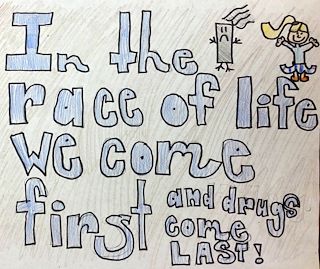 In the
race of life
we come
first and drugs
come
LAST!